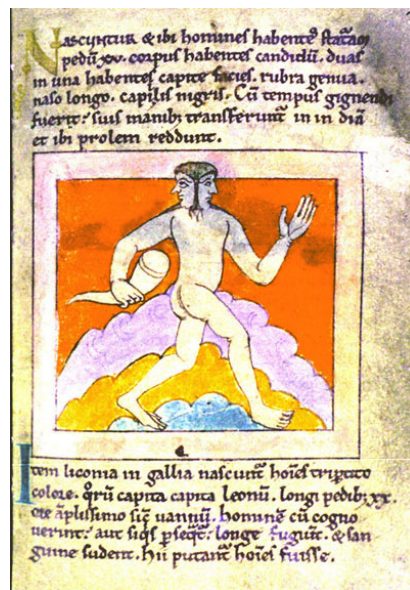 Nascuntur & ibi homines habentes staturā
pedū xv. corpus habentes candidū. duas
in una habentes capite facies. rubra genua.
naso longo. capillis nigris. Cū tempus gignendi
fuerit. suis manibꝰ transferunt̄ in in diā
et ibi prolem reddunt.
Item liconia in gallia nascunt̄ hoīes tripꝑtito
colore. qͦrū capita capita leonū. longi pedibꝰ xx.
ore āplissimo sic̄ vannū. homine cū cogno
uerint. aut siqͥs ꝑseqͭr. longe fugiūt. & san
guine sudent. hii putant̄ hoīes fuisse.